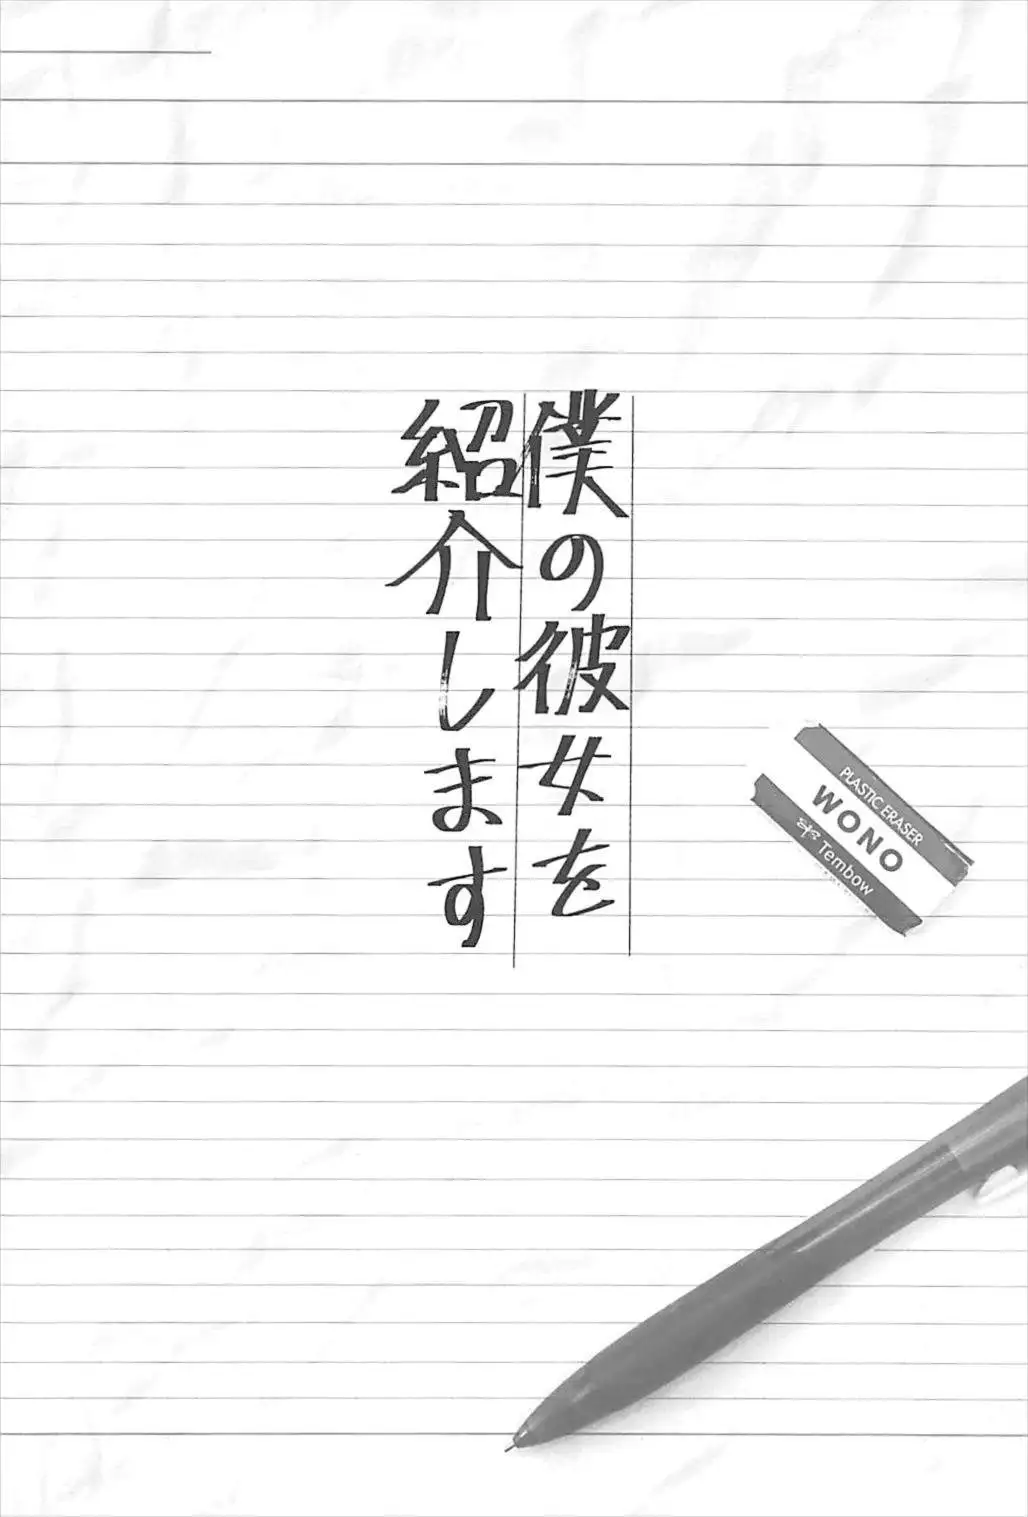 僕の彼女を
紹介します
PLASTIC ERASER
WONO
Tembow